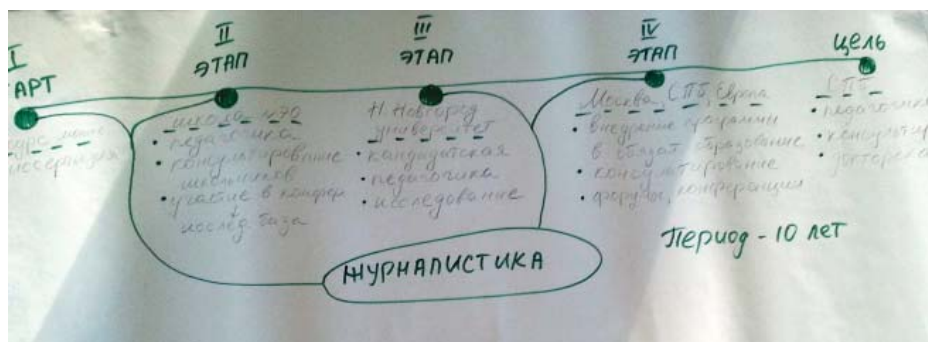 I
АРТ
II
ЭТАП
школа №70
• педагогика
• консультирование
школьников
• участие в конфер.
исслед. база
III
ЭТАП
Н. Новгород
университет
• кандидатская
• педагогика
• исследование
IV
ЭТАП
Москва, СПб, Европа
• внедрение программы
в образование
• консультирование
• форумы, конференции
ЦЕЛЬ
СПб
• педагогика
• консультир
ЖУРНАЛИСТИКА
Период - 10 лет